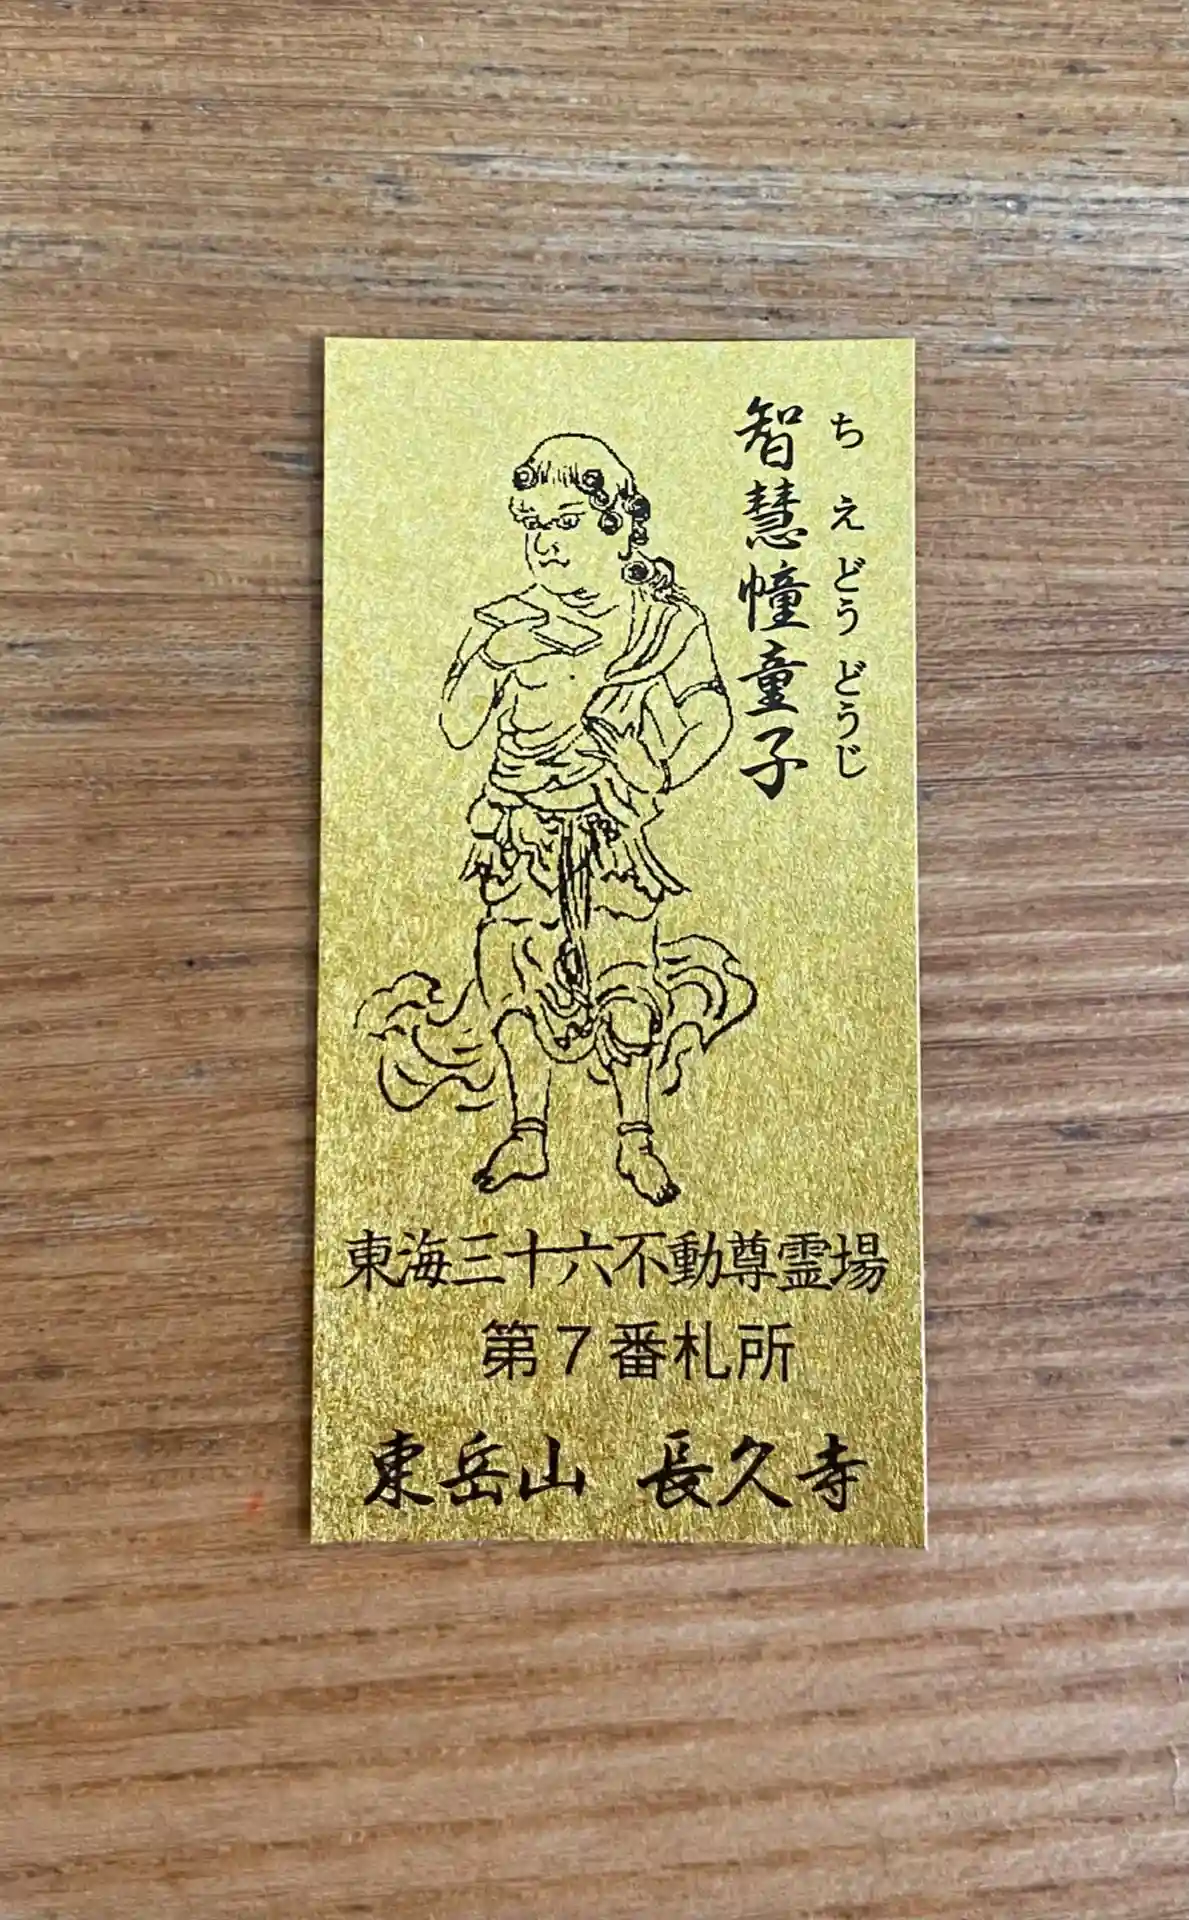 智慧幢童子
ちえどうどうじ
東海三十六不動尊霊場
第7番札所
東岳山 長久寺